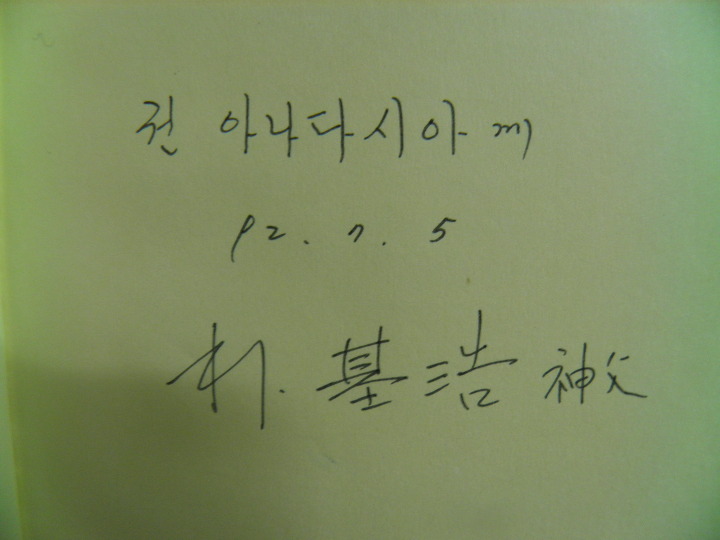 권 아나다시아께
92. 7. 5
朴. 基浩 神父